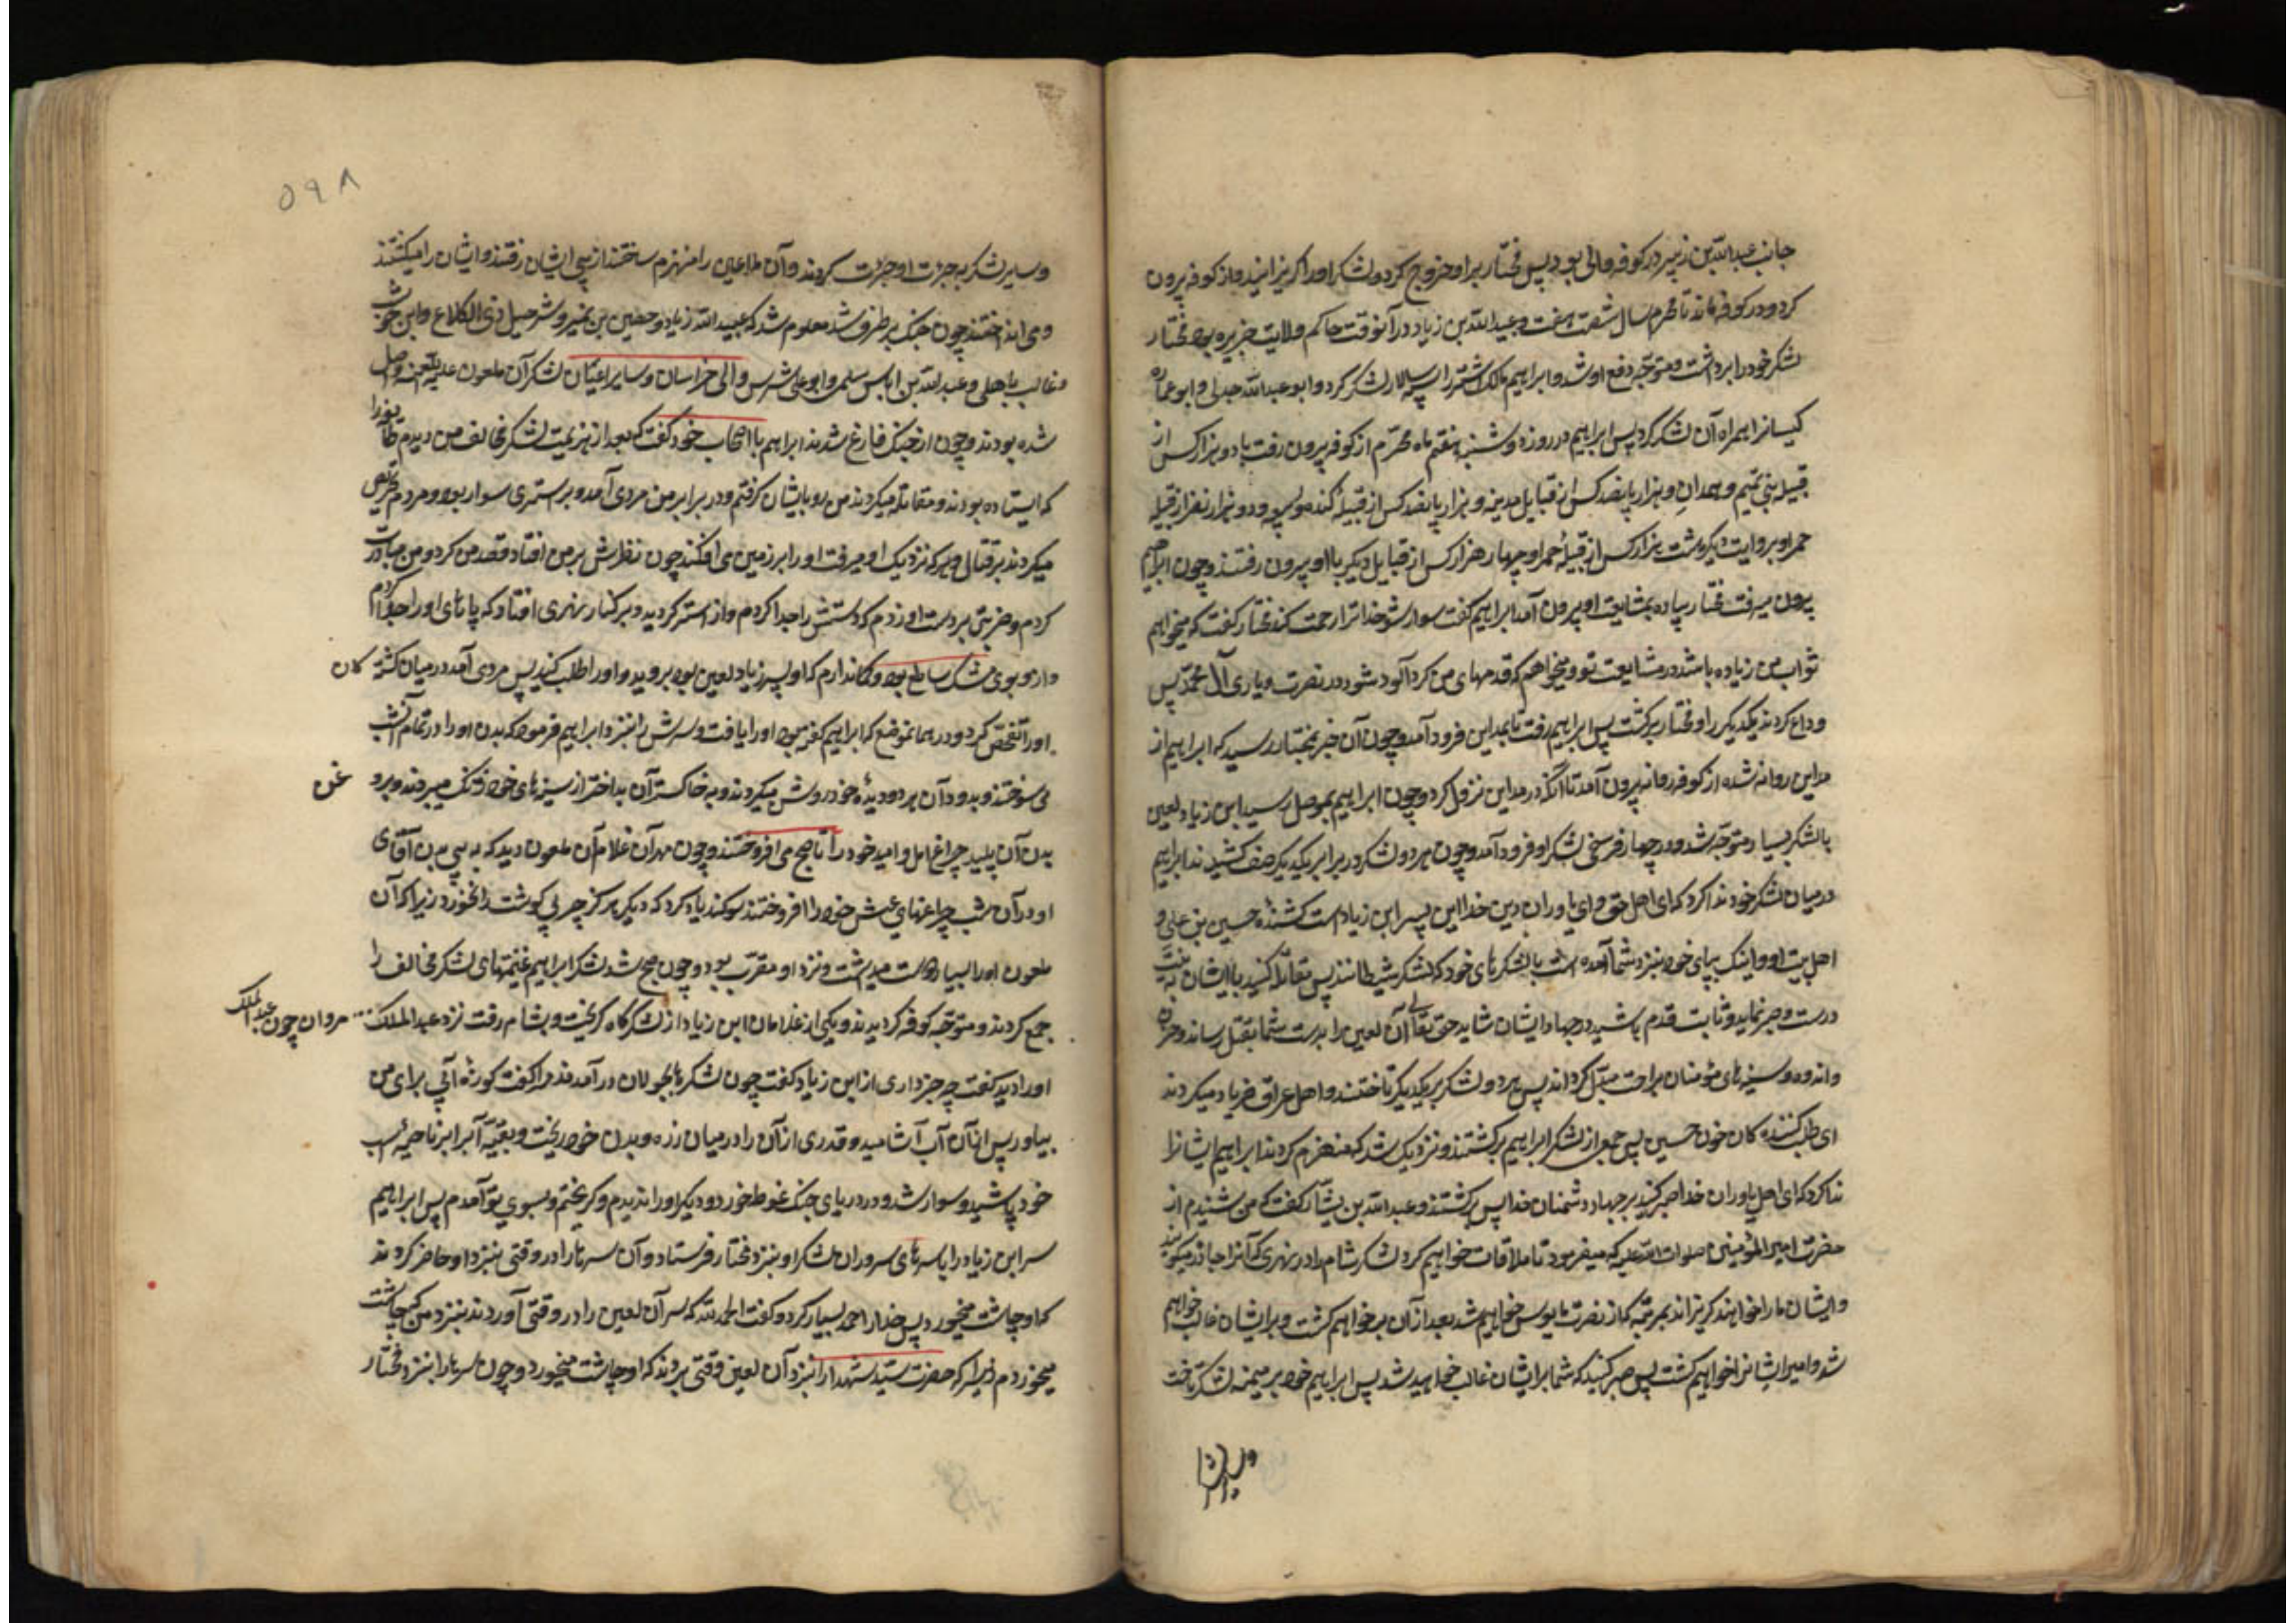 جانب عبدالله بن زبیر در کوفه والی بود پس مختار بر او خروج کرد و لشکر او را گریزانید و از کوفه بیرون
کرد و در کوفه ماند تا محرم سال شصت و هفت و عبیدالله بن زیاد در آنوقت حاکم ولایت جزیره بود مختار
لشکر خود را برداشت و متوجه دفع او شد و ابراهیم مالک اشتر را سپه سالار لشکر کرد و ابو عبدالله جدلی و ابو عماره
کیسانرا همراه آن لشکر کرد پس ابراهیم در روز دوشنبه هفتم ماه محرم از کوفه بیرون رفت با دو هزار کس از
قبیله بنی تمیم و همدان و هزار پانصد کس از قبایل مدینه و هزار پانصد کس از قبیله کنده و ربیعه و دو هزار نفر از قبیله
حمرا و بروایت دیگر هشت هزار کس از قبیله حمرا و چهار هزار کس از قبایل دیگر با او بیرون رفتند و چون ابراهیم
بیرون میرفت مختار پیاده بمشایعت او بیرون آمد ابراهیم گفت سوار شو خدا ترا رحمت کند مختار گفت که میخواهم
ثواب من زیاده باشد در مشایعت تو و میخواهم که قدمهای من گرد آلود شود در نصرت و یاری آل محمد پس
وداع کردند یکدیگر را و مختار برگشت پس ابراهیم رفت تا بمداین فرود آمد و چون آن خبر بمختار رسید که ابراهیم از
مداین روانه شده از کوفه روانه بیرون آمد تا آنکه در مداین نزول کرد و چون ابراهیم بموصل رسید ابن زیاد لعین
با لشکر بسیار متوجه شد و در چهار فرسخی لشکر او فرود آمد و چون هر دو لشکر در برابر یکدیگر صف کشیدند ابراهیم
در میان لشکر خود ندا کرد که ای اهل حق و ای یاوران دین خدا این پسر ابن زیاد است کشنده حسین بن علی و
اهل بیت او و اینک بپای خود بنزد شما آمده است با لشکرهای خود که لشکر شیطانند پس مقاتله کنید با ایشان به نیت
درست و صبر نمایید و ثابت قدم باشید در جهاد ایشان شاید حق تعالی آن لعین را بدست شما بقتل رساند و حزن
و اندوه سینه های مؤمنان براحت مبدل گرداند پس هر دو لشکر بر یکدیگر تاختند و اهل عراق فریاد میکردند
ای طلب کننده کان خون حسین پس جمعی از لشکر ابراهیم برگشتند و نزدیک شد که منهزم گردند ابراهیم ایشانرا
ندا کرد که ای اهل یاوران خدا صبر کنید بر جهاد دشمنان خدا پس برگشتند و عبدالله بن یسار گفت که من شنیدم از
حضرت امیرالمؤمنین صلوات الله علیه که میفرمود تا ملاقات خواهیم کرد لشکر شام را در نهری که آنرا خازر میگویند
و ایشان ما را خواهند گریزاند بمرتبه که از نصرت مایوس خواهیم شد بعد از آن بر خواهیم گشت و بر ایشان غالب خواهیم
شد و امیر ایشانرا خواهیم کشت پس صبر کنید که شما بر ایشان غالب خواهید شد پس ابراهیم خود بر میمنه لشکر تاخت
۵۹۸
و سایر لشکر به جرئت او جرئت کردند و آن ملاعین را منهزم ساختند از پی ایشان رفتند و ایشان را میکشتند
و می انداختند چون جنک برطرف شد معلوم شد که عبیدالله زیاد و حصین بن نمیر و شرحبیل ذی الکلاع و ابن حوشب
و غالب باهلی و عبدالله بن ایاس سلمی و ابو علی شرس والی خراسان و سایر اعیان لشکر آن ملعون علیه اللعنه واصل
شده بودند و چون از جنک فارغ شدند ابراهیم با اصحاب خود گفت که بعد از هزیمت لشکر مخالف من دیدم طایفه را
که ایستاده بودند و مقاتله میکردند من رو بایشان رفتم و در برابر من مردی آمد و بر استری سوار بود و مردم تحریص
میکردند بر قتال و هر که نزدیک او میرفت او را بر زمین می افکند چون نظرش بر من افتاد قصد من کرد و من مبادرت
کردم و ضربتی بر دست او زدم که دستش را جدا کردم و از استر گردید و بر کنار نهری افتاد که پاهای او را جدا کردم
و از و بوی مشک ساطع بود و گمان دارم که او پسر زیاد لعین بود بروید و او را طلب کنید پس مردی آمد در میان کشته کان
او را تفحص کرد و در همانموضع که ابراهیم گفته بود او را یافت و سرش را بنزد ابراهیم فرمود که بدن او را در تمام آنشب
می سوختند و بدود آن بر دو دیده خود روشن میکردند و به خاکستر آن بد اختر از سینه های خود زنک میبردند و برد غن
بدن آن پلید چراغ امل و امید خود را تا صبح می افروختند و چون مهران غلام آن ملعون دید که به پی بدن آقای
او در آن شب چراغهای عیش خود را افروختند سوکند یاد کرد که دیگر هرگز چربی گوشت را نخورد زیرا که آن
ملعون او را بسیار دوست میداشت و نزد او مقرب بود و چون صبح شد لشکر ابراهیم غنیمتهای لشکر مخالف را
جمع کردند و متوجه کوفه گردیدند و یکی از غلامان ابن زیاد از لشکرگاه گریخت و بشام رفت نزد عبدالملک مروان چون عبدالملک
او را دید گفت چه خبر داری از ابن زیاد گفت چون لشکرها بجولان درآمدند مرا گفت کوزه آبی برای من
بیاور پس از آن آب آشامید و قدری از آن را در میان زره و بدن خود ریخت و بقیه آبرا بر ناصیه اسب
خود پاشید و سوار شد و در دریای جنک غوطه خورد و دیگر او را ندیدم و گریختم و بسوی تو آمدم پس ابراهیم
سر ابن زیاد را با سرهای سروران لشکر او بنزد مختار فرستاد و آن سرها را در وقتی بنزد او حاضر کردند
که او چاشت میخورد پس خدا را حمد بسیار کرد و گفت الحمدلله که سر آن لعین را در وقتی آوردند بنزد من که چاشت
میخوردم زیرا که حضرت سید شهدا را بنزد آن لعین وقتی بردند که او چاشت میخورد و چون سرها را بنزد مختار